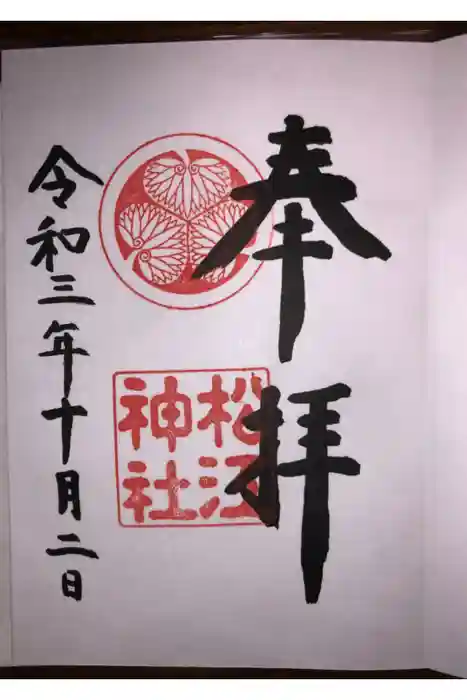 奉拝
松江
神社
令和三年十月二日